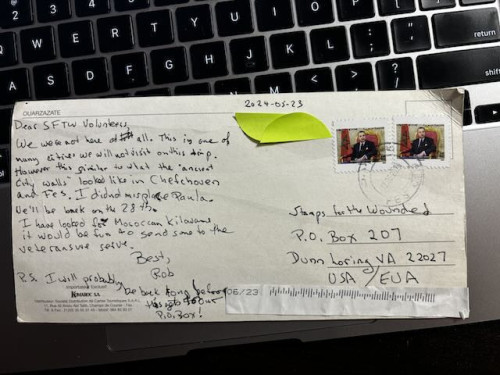 OUARZAZATE
2024-05-23
Dear SFTW Volunteers,
We were not here at all. This is one of
many cities we will not visit on this trip.
However this similar to what the "ancient
City walls" looked like in Chefchouen
and Fes. I didn't misplace Paula.
We'll be back on the 28th.
I have looked for Moroccan kilowares
it would be fun to send some to the
veterans we serve.
Best,
Rob
P.S. I will probably be back long before
this gets to our
P.O. Box!
Stamps for the Wounded
P.O. Box 207
Dunn Loring VA 22027
USA/EUA
06/23
A
S
D
F
G
H
J
K
L
E
R
T
Y
U
I
O
P
return
shift